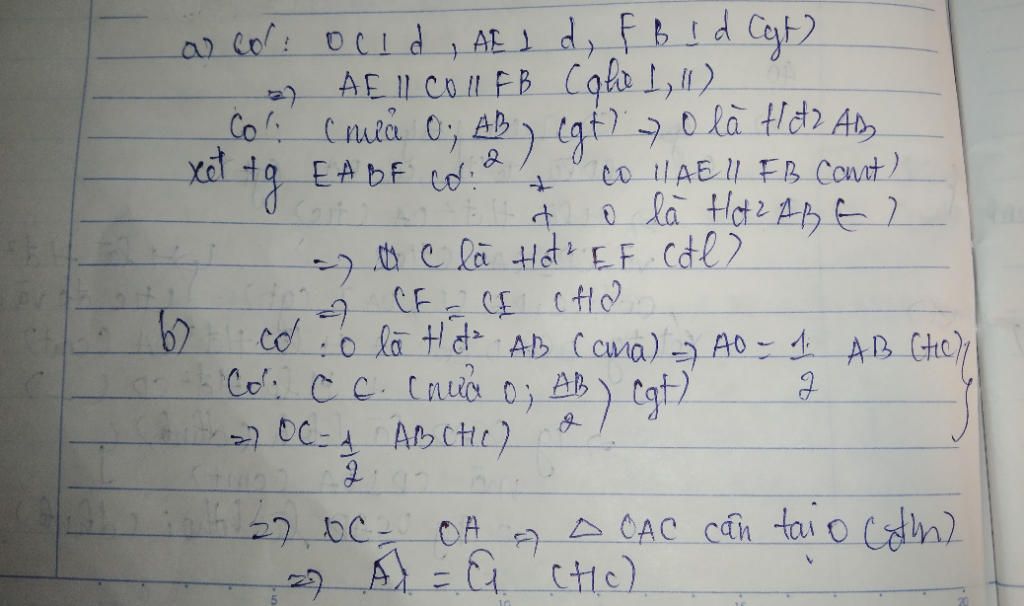 a) Có: OC ⊥ d, AE ⊥ d, FB ⊥ d (gt)
=> AE // CO // FB (qhe ⊥, //)
Có: (nửa O; AB/2) (gt) => O là tđ2 AB
xét tg EABF có: + CO // AE // FB (cmt)
+ O là tđ2 AB (
=> C là tđ2 EF (đl)
=> CF = CE (t/c)
b) có: O là tđ2 AB (cma) => AO = 1/2 AB (t/c) }
Có: C ∈ (nửa O; AB/2) (gt)
=> OC = 1/2 AB (t/c)
=> OC = OA => △ OAC cân tại O (đn)
=> Â1 = Ĉ1 (t/c)